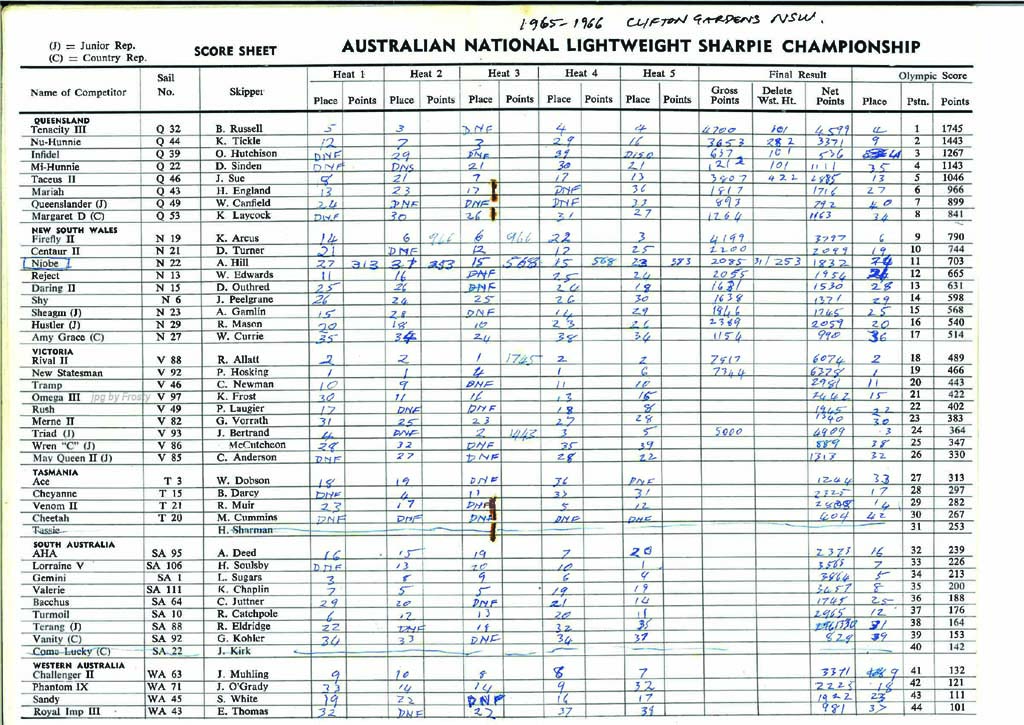 1965-1966 CLIFTON GARDENS NSW.
(J) = Junior Rep.
(C) = Country Rep.
SCORE SHEET AUSTRALIAN NATIONAL LIGHTWEIGHT SHARPIE CHAMPIONSHIP
Name of Competitor Sail No. Skipper Heat 1 Heat 2 Heat 3 Heat 4 Heat 5 Final Result Olympic Score
Place Points Place Points Place Points Place Points Place Points Gross Points Delete Wst. Ht. Net Points Place Pstn. Points
QUEENSLAND
Tenacity III Q 32 B. Russell 5 3 DNF 4 4 4700 101 4599 4 1 1745
Nu-Hunnie Q 44 K. Tickle 12 7 3 29 16 3653 282 3371 9 2 1443
Infidel Q 39 O. Hutchison DNF 29 DNF 39 DISQ 637 101 536 3 1267
Mi-Hunnie Q 22 D. Sinden DNF DNS 21 30 21 1212 101 1111 35 4 1143
Taceus II Q 46 J. Sue 8 21 7 17 13 3307 422 2885 13 5 1046
Mariah Q 43 H. England 13 23 17 DNF 36 1817 1716 27 6 966
Queenslander (J) Q 49 W. Canfield 24 DNF DNF DNF 33 893 792 40 7 899
Margaret D (C) Q 53 K Laycock DNF 30 26 31 27 1264 1163 34 8 841
NEW SOUTH WALES
Firefly II N 19 K. Arcus 14 6 966 6 966 22 3 4199 3797 6 9 790
Centaur II N 21 D. Turner 21 DNF 12 12 25 2200 2099 19 10 744
Niobe N 22 A. Hill 27 313 37 253 15 568 15 568 23 383 2085 31/253 1832 24 11 703
Reject N 13 W. Edwards 11 16 DNF 25 24 2055 1954 12 665
Daring II N 15 D. Outhred 25 26 DNF 24 18 1631 1530 28 13 631
Shy N 6 J. Peelgrane 26 24 25 26 30 1638 1371 29 14 598
Sheagm (J) N 23 A. Gamlin 15 28 DNF 14 29 1846 1745 25 15 568
Hustler (J) N 29 R. Mason 20 18 10 23 26 2389 2059 20 16 540
Amy Grace (C) N 27 W. Currie 35 34 24 38 34 1154 990 36 17 514
VICTORIA
Rival II V 88 R. Allatt 2 2 1 1745 2 2 7517 6074 2 18 489
New Statesman V 92 P. Hosking 1 1 4 1 6 7344 6378 1 19 466
Tramp V 46 C. Newman 10 9 DNF 11 10 2981 11 20 443
Omega III jpg by Frosty V 97 K. Frost 30 11 16 13 15 2442 15 21 422
Rush V 49 P. Laugier 17 DNF DNF 18 8 1945 22 22 402
Merne II V 82 G. Vorrath 31 25 23 27 28 1340 30 23 383
Triad (J) V 93 J. Bertrand 4 DNF 2 1443 3 5 5000 4909 3 24 364
Wren "C" (J) V 86 McCutcheon 28 32 DNF 35 39 889 38 25 347
May Queen II (J) V 85 C. Anderson DNF 27 DNF 28 22 1313 32 26 330
TASMANIA
Ace T 3 W. Dobson 18 19 DNF 36 DNF 1244 33 27 313
Cheyanne T 15 B. Darcy DNF 4 11 33 31 2325 17 28 297
Venom II T 21 R. Muir 23 17 DNF 5 12 14 29 282
Cheetah T 20 M. Cummins DNF DNF DNF DNF DNF 404 42 30 267
Tassie H. Sharman 31 253
SOUTH AUSTRALIA
AHA SA 95 A. Deed 16 15 19 7 20 2373 16 32 239
Lorraine V SA 106 H. Soulsby DNF 13 20 10 1 3565 7 33 226
Gemini SA 1 L. Sugars 3 8 9 6 9 3864 5 34 213
Valerie SA 111 K. Chaplin 7 5 5 19 19 3457 8 35 200
Bacchus SA 64 C. Juttner 29 20 DNF 21 14 1745 25 36 188
Turmoil SA 10 R. Catchpole 6 12 13 20 11 2965 12 37 176
Terang (J) SA 88 R. Eldridge 22 DNF 18 32 35 1330 31 38 164
Vanity (C) SA 92 G. Kohler 34 33 DNF 34 37 828 39 39 153
Come Lucky (C) SA 22 J. Kirk 40 142
WESTERN AUSTRALIA
Challenger II WA 63 J. Muhling 9 10 8 8 7 3371 9 41 132
Phantom IX WA 71 J. O'Grady 33 14 14 9 32 2225 18 42 121
Sandy WA 45 S. White 19 22 DNF 16 17 1922 23 43 111
Royal Imp III WA 43 E. Thomas 32 DNF 22 37 39 981 37 44 101